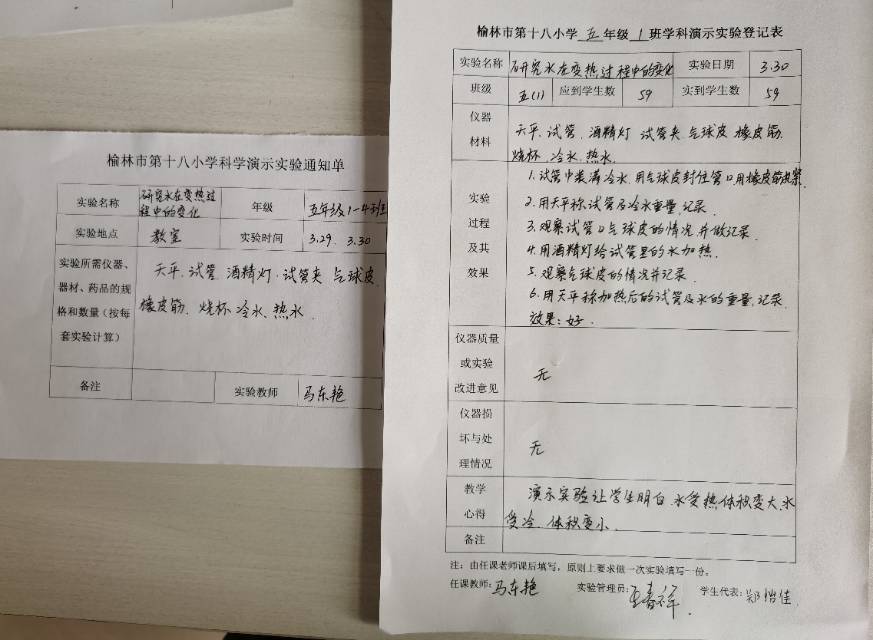 榆林市第十八小学科学演示实验通知单
实验名称 研究水在变热过程中的变化 年级 五年级1-4班
实验地点 教室 实验时间 3.29、3.30
实验所需仪器、器材、药品的规格和数量（按每套实验计算） 天平、试管、酒精灯、试管夹、气球皮、
橡皮筋、烧杯、冷水、热水
备注 实验教师 马东艳
榆林市第十八小学 五 年级 1 班学科演示实验登记表
实验名称 研究水在变热过程中的变化 实验日期 3.30
班级 五(1) 应到学生数 59 实到学生数 59
仪器材料 天平、试管、酒精灯 试管夹、气球皮 橡皮筋、
烧杯、冷水、热水
实验过程及其效果
1.试管中装满冷水,用气球皮封住管口用橡皮筋绑紧
2.用天平称试管及冷水重量,记录.
3.观察试管口气球皮的情况,并做记录.
4.用酒精灯给试管里的水加热.
5.观察气球皮的情况并记录.
6.用天平称加热后的试管及水的重量,记录.
效果:好.
仪器质量或实验改进意见 无
仪器损坏与处理情况 无
教学心得 演示实验让学生明白,水受热,体积变大,水
受冷,体积变小.
备注
注：由任课老师课后填写，原则上要求做一次实验填写一份。
任课教师:马东艳 实验管理员:王春祥 学生代表:郑怡佳